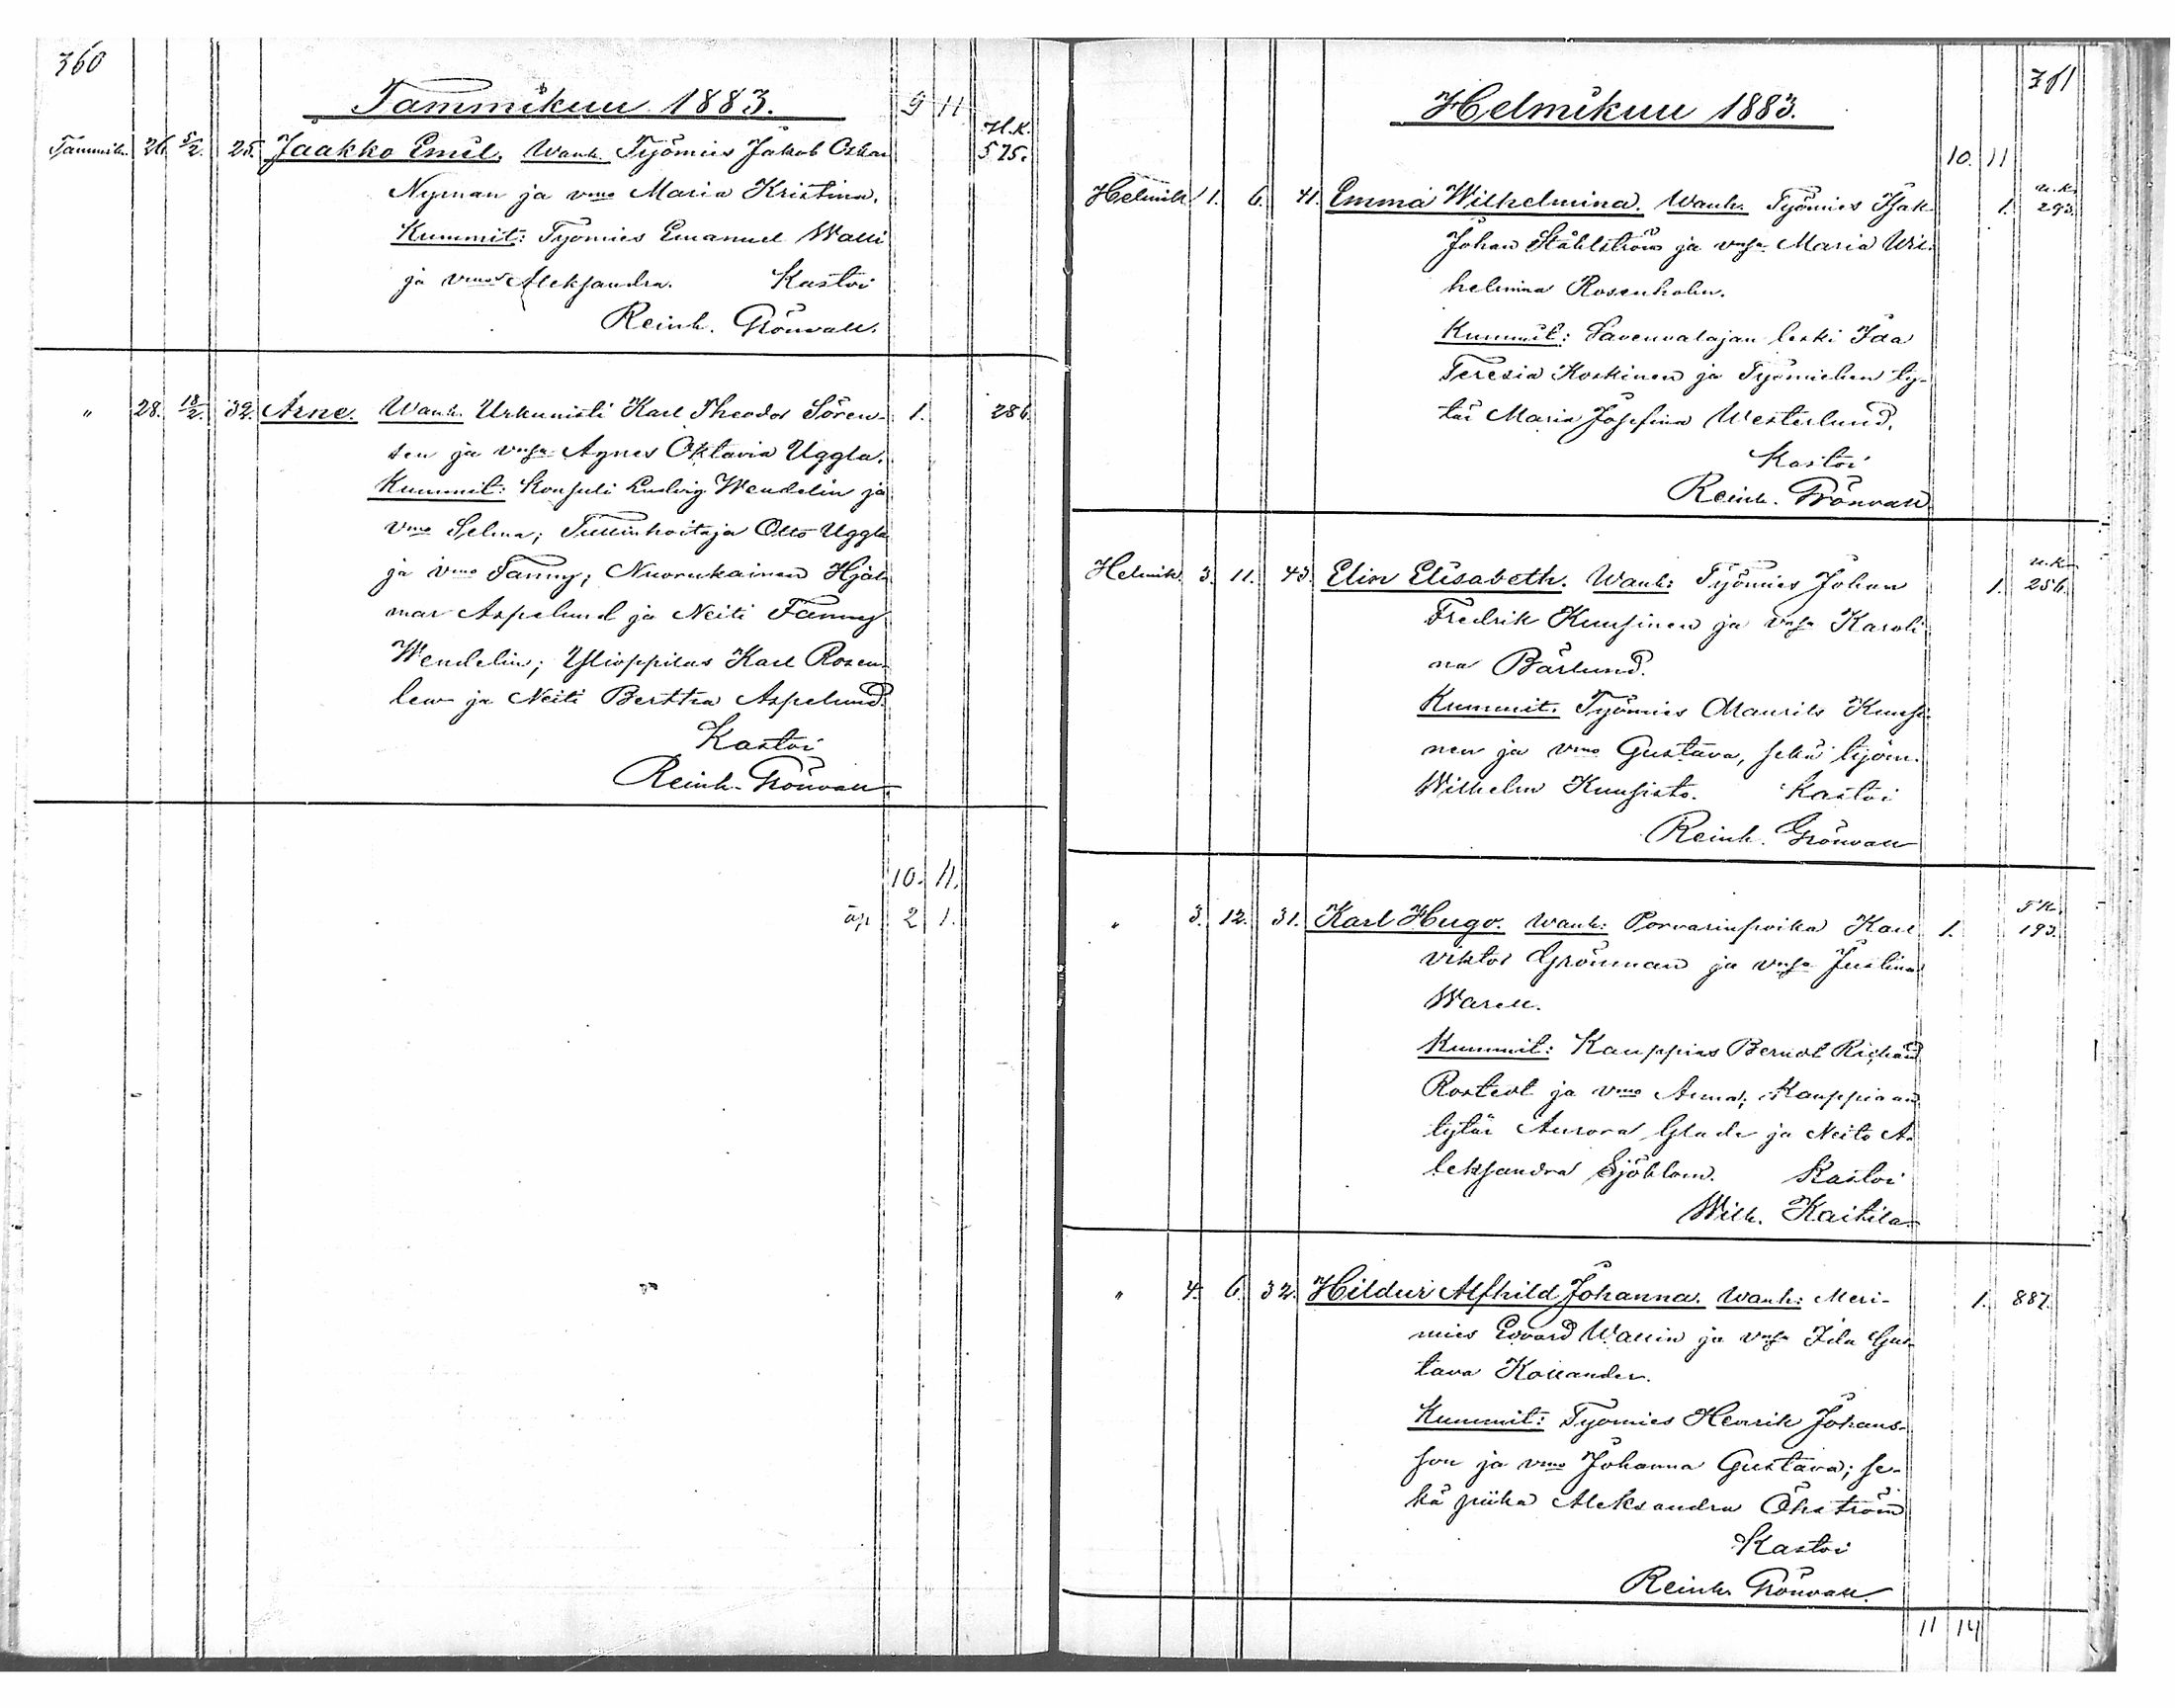 360
Tammikuu 1883.
9 11
H.K.
Tammik. 26. 5/2. 25. Jaakko Emil. Wanh. Työmies Jakob Oskar 575.
Nyman ja vmo Maria Kristina.
Kummit: Työmies Emanuel Walli
ja vmo Aleksandra. Kastoi
Reinh. Grönvall.
" 28. 18/2. 32. Arne. Wanh. Urkunisti Karl Theodor Sören- 1. 286.
sen ja vsa Agnes Oktavia Uggla.
Kummit: Konsuli Ludvig Wendelin ja
vmo Selma; Tullinhoitaja Otto Uggla
ja vmo Fanny; Nuorukainen Hjal-
mar Aspelund ja Neiti Fanny
Wendelin; Ylioppilas Karl Rosen-
lew ja Neiti Bertha Aspelund.
Kastoi
Reinh. Grönvall
10. 11.
äp 2 1.
361
Helmikuu 1883.
10. 11
u.k.
Helmik. 1. 6. 41. Emma Wilhelmina. Wanh. Työmies Isak 1. 293.
Johan Ståhlström ja vsa Maria Wil-
helmina Rosenholm.
Kummit: Savenvalajan leski Ida
Teresia Koskinen ja Työmiehen ty-
tär Maria Josefina Westerlund.
Kastoi
Reinh. Grönvall
u.k.
Helmik. 3. 11. 43. Elin Elisabeth. Wanh: Työmies Johan 1. 256.
Fredrik Kuusinen ja vsa Karoli-
na Bärlund.
Kummit. Työmies Maurits Kuusi-
nen ja vmo Gustava, sekä työm.
Wilhelm Kuusisto. Kastoi
Reinh. Grönvall
" 3. 12. 31. Karl Hugo. Wanh: Porvarinpoika Karl 1. 193.
Viktor Grönman ja vsa Justina
Warell.
Kummit: Kauppias Berndt Richard
Rostedt ja vmo Anna; Kauppiaan
tytär Aurora Glade ja Neito A-
leksandra Sjöblom. Kastoi
Wilh. Kaitila
" 4. 6. 32. Hildur Alfhild Johanna. Wanh: Meri- 1. 887.
mies Edvard Wallin ja vsa Ida Gus-
tava Kollander.
Kummit: Työmies Henrik Johans-
son ja vmo Johanna Gustava; se-
kä piika Aleksandra Öhström
Kastoi
Reinh. Grönvall.
11 14